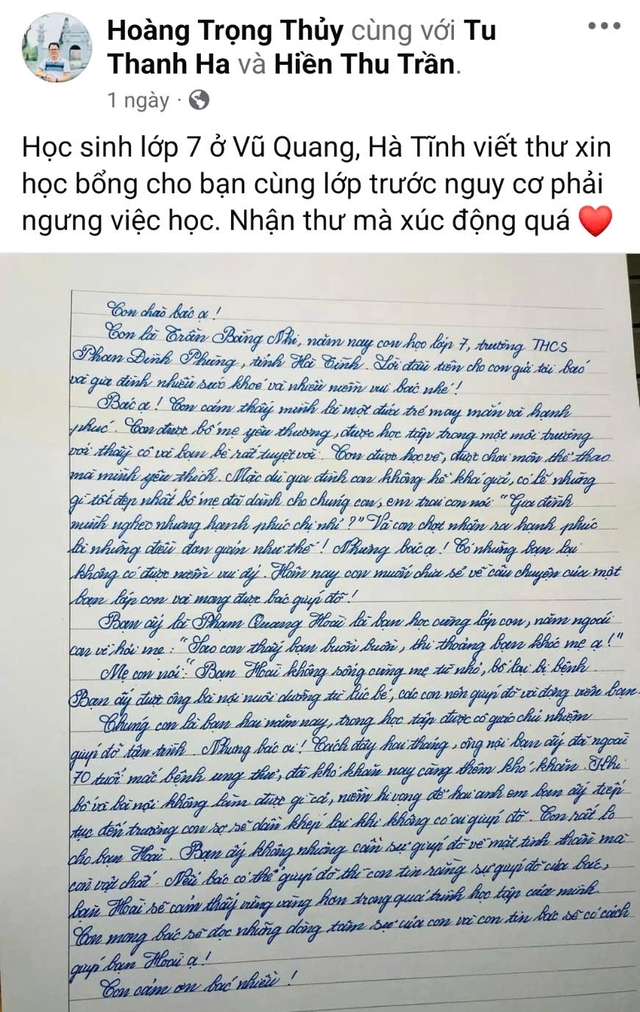 Hoàng Trọng Thủy cùng với Tu
Thanh Ha và Hiền Thu Trần.
1 ngày ·
Học sinh lớp 7 ở Vũ Quang, Hà Tĩnh viết thư xin
học bổng cho bạn cùng lớp trước nguy cơ phải
ngưng việc học. Nhận thư mà xúc động quá ❤️
Con chào bác ạ!
Con là Trần Băng Nhi, năm nay con học lớp 7, trường THCS
Phan Đình Phùng, tỉnh Hà Tĩnh. Lời đầu tiên cho con gửi tới bác
và gia đình nhiều sức khoẻ và nhiều niềm vui bác nhé!
Bác ạ! Con cảm thấy mình là một đứa trẻ may mắn và hạnh
phúc. Con được bố mẹ yêu thương, được học tập trong một môi trường
với thầy cô và bạn bè rất tuyệt vời. Con được học vẽ, được chơi môn thể thao
mà mình yêu thích. Mặc dù gia đình con không hề khá giả, có lẽ những
gì tốt đẹp nhất bố mẹ đã dành cho chúng con, em trai con nói: "Gia đình
mình nghèo nhưng hạnh phúc chị nhỉ?" Và con chợt nhận ra hạnh phúc
là những điều đơn giản như thế! Nhưng bác ạ! Có những bạn lại
không có được niềm vui ấy. Hôm nay con muốn chia sẻ về câu chuyện của một
bạn lớp con và mong được bác giúp đỡ!
Bạn ấy là Phạm Quang Hoài là bạn học cùng lớp con, năm ngoái
con về hỏi mẹ: "Sao con thấy bạn buồn buồn, thi thoảng bạn khóc mẹ ạ!"
Mẹ con nói: "Bạn Hoài không sống cùng mẹ từ nhỏ, bố lại bị bệnh
Bạn ấy được ông bà nội nuôi dưỡng từ lúc bé, các con nên giúp đỡ và động viên bạn.
Chúng con là bạn hai năm nay, trong học tập được cô giáo chủ nhiệm
giúp đỡ tận tình. Nhưng bác ơi! Cách đây hai tháng, ông nội bạn ấy đã ngoài
70 tuổi mắc bệnh ung thư, đã khó khăn nay càng thêm khó khăn. Khi
bố và bà nội không làm được gì cả, niềm hi vọng để hai anh em bạn ấy tiếp
tục đến trường con sợ sẽ dần khép lại khi không có ai giúp đỡ. Con rất lo
cho bạn Hoài. Bạn ấy không những cần sự giúp đỡ về mặt tinh thần mà
cả vật chất. Nếu bác có thể giúp đỡ thì con tin rằng sự giúp đỡ của bác,
bạn Hoài sẽ cảm thấy vững vàng hơn trong quá trình học tập của mình
Con mong bác sẽ đọc những dòng tâm sự của con và con tin bác sẽ có cách
giúp bạn Hoài ạ!
Con cảm ơn bác nhiều!